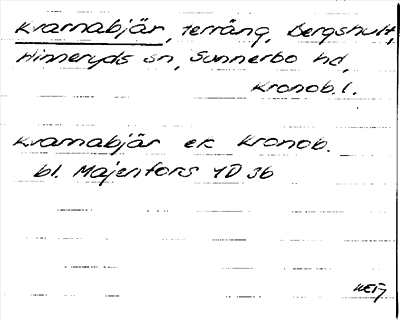 Kvarnabjär, terräng, Bergshult,
Hinneryds sn, Sunnerbo hd,
Kronob. l.
Kvarnabjär ek Kronob.
bl. Majenfors 4D 3b